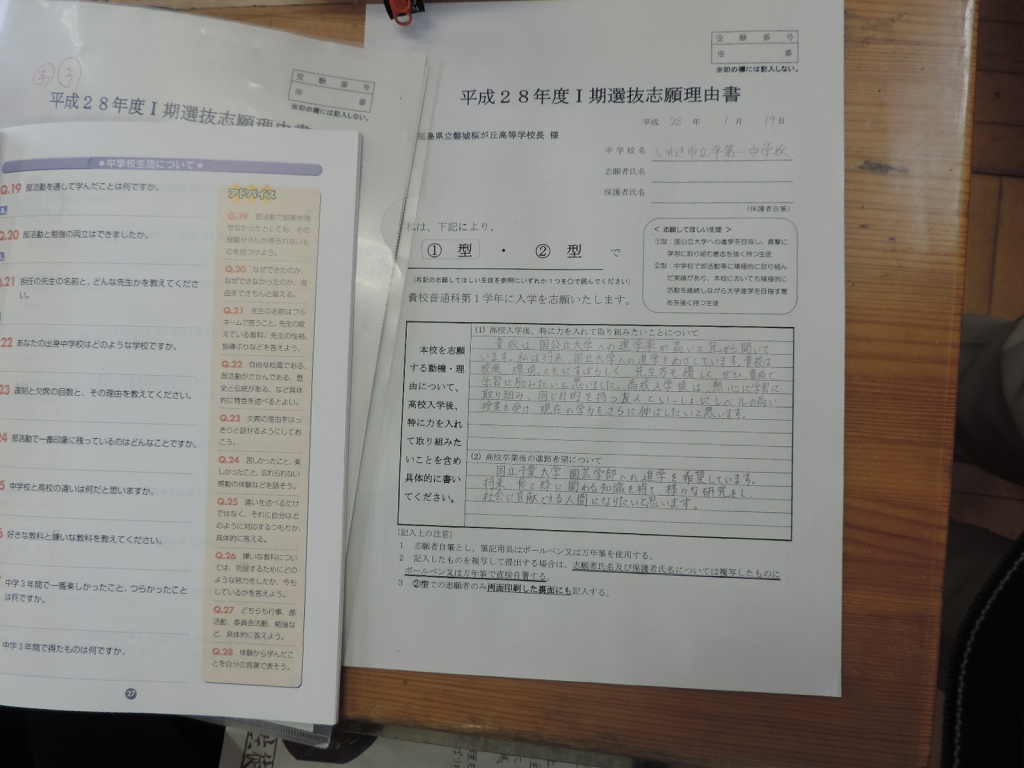 受験番号
※ 番
※印の欄には記入しない。
平成28年度Ⅰ期選抜志願理由書
平成 28 年 1 月 19 日
福島県立磐城桜が丘高等学校長 様
中学校名 いわき市立平第一中学校
志願者氏名
保護者氏名
(保護者自筆)
私は、下記により、
① 型 ・ ② 型 で
(右記の志願してほしい生徒を参照にいずれか1つを○で囲んでください)
貴校普通科第1学年に入学を志願いたします。
< 志願してほしい生徒 >
①型:国公立大学への進学を目指し、真摯に
学習に取り組む意志を強く持つ生徒
②型:中学校で部活動等に積極的に取り組ん
だ実績があり、本校においても積極的に
活動を継続しながら大学進学を目指す意
志を強く持つ生徒
本校を志願
する動機・理
由について、
高校入学後、
特に力を入れ
て取り組みた
いことを含め
具体的に書い
てください。
(1) 高校入学後、特に力を入れて取り組みたいことについて
貴校は、国公立大学への進学率が高いと兄から聞いて
います。私は将来、国立大学への進学をめざしています。貴校は
校風、環境ともにすばらしく、先生方も優しく、ぜひ貴校で
学習に励みたいと思いました。高校入学後は、熱心に学習に
取り組み、同じ目的を持つ友人といっしょにレベルの高い
授業を受け、現在の学力をさらに伸ばしたいと思います。
(2) 高校卒業後の進路希望について
国立千葉大学 園芸学部への進学を希望しています。
将来、食と緑に関わる知識を得て、様々な研究をし、
社会に貢献できる人間になりたいと思います。
(記入上の注意)
1 志願者自筆とし、筆記用具はボールペン又は万年筆を使用する。
2 記入したものを複写して提出する場合は、志願者氏名及び保護者氏名については複写したものに
ボールペン又は万年筆で直接自署する。
3 ②型での志願者のみ両面印刷した裏面にも記入する。
③
受験番号
※ 番
※印の欄には記入しない。
平成28年度Ⅰ期選抜志願理由書
中学校生活について
Q.19 部活動を通して学んだことは何ですか。
Q.20 部活動と勉強の両立はできましたか。
Q.21 担任の先生の名前と、どんな先生かを教えてくださ
い。
22 あなたの出身中学校はどのような学校ですか。
23 遅刻と欠席の回数と、その理由を教えてください。
24 部活動で一番印象に残っているのはどんなことですか。
5 中学校と高校の違いは何だと思いますか。
好きな教科と嫌いな教科を教えてください。
中学3年間で一番楽しかったこと、つらかったこと
は何ですか。
中学3年間で得たものは何ですか。
アドバイス
Q.19 部活動で結果を残
せなかったとしても、その
経験からしか得られないも
のを見つけよう。
Q.20 なぜできたのか、
なぜできなかったのか、理
由まできちんと答える。
Q.21 先生の名前はフル
ネームで言うこと。先生の教
えている教科、先生の性格、
指導ぶりなどを答えよう。
Q.22 自由な校風である、
部活動がさかんである、歴
史と伝統がある、など具体
的に特色を述べるとよい。
Q.23 欠席の理由をはっ
きりと話せるようにしてお
こう。
Q.24 苦しかったこと、楽
しかったこと、忘れられない
感動の体験などを話そう。
Q.25 違いを述べるだけ
ではなく、それに自分はど
のように対応するつもりか、
具体的に答える。
Q.26 嫌いな教科につい
ては、克服するためにどの
ような努力をしたか、今も
しているかを答えよう。
Q.27 どちらも行事、部
活動、委員会活動、勉強な
ど、具体的に答えよう。
Q.28 体験から学んだこ
とを自分の言葉で表そう。
27